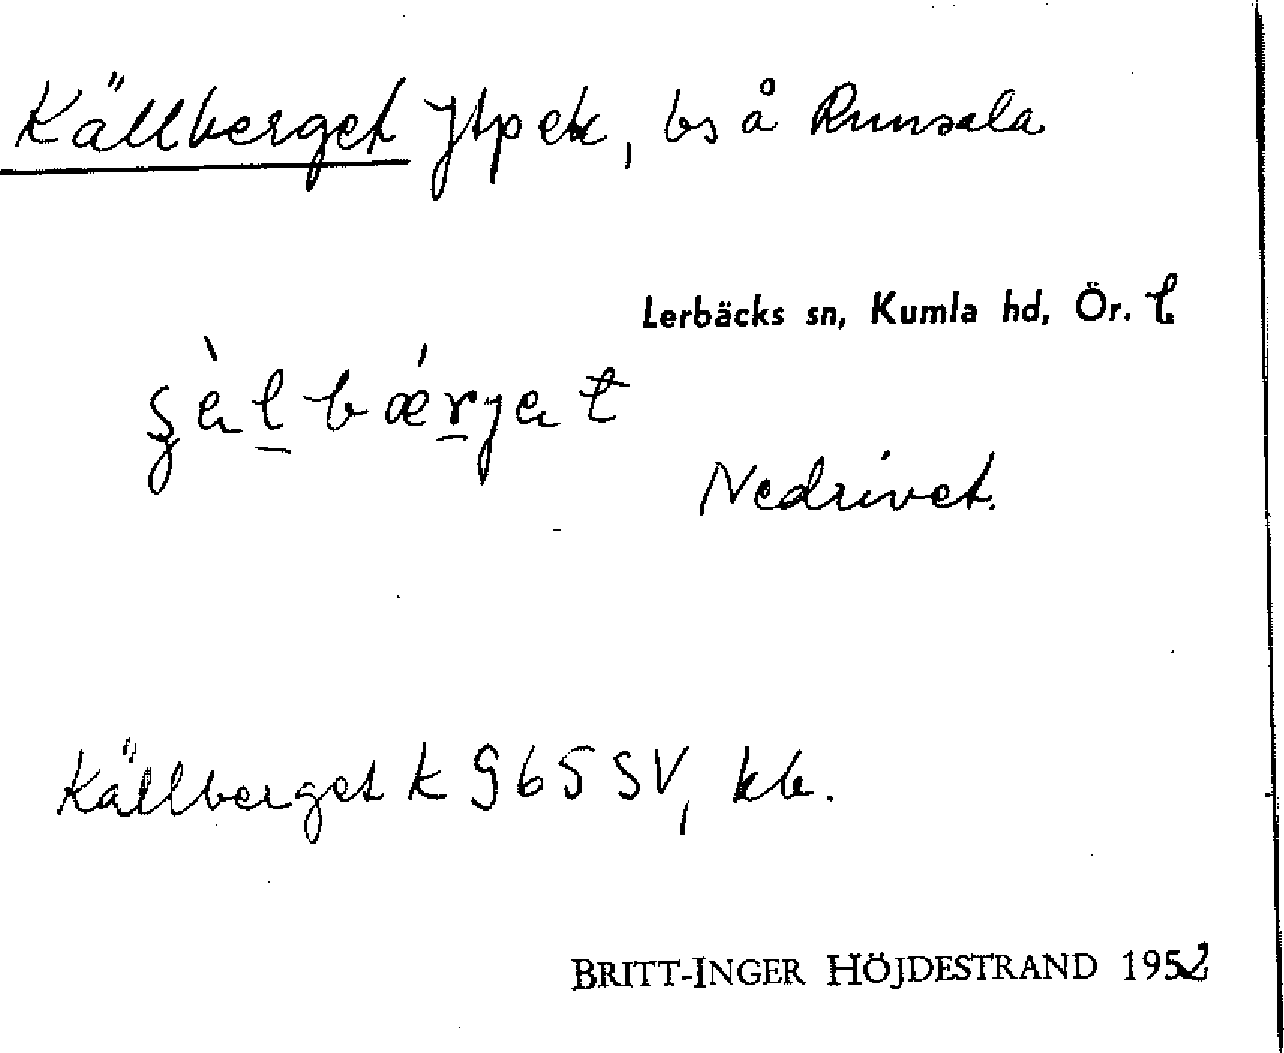 Källberget Jtp ek, bs å Runsala
Lerbäcks sn, Kumla hd, Ör. l.
Nedrivet.
Källberget k 965 SV, kb.
BRITT-INGER HÖJDESTRAND 1952